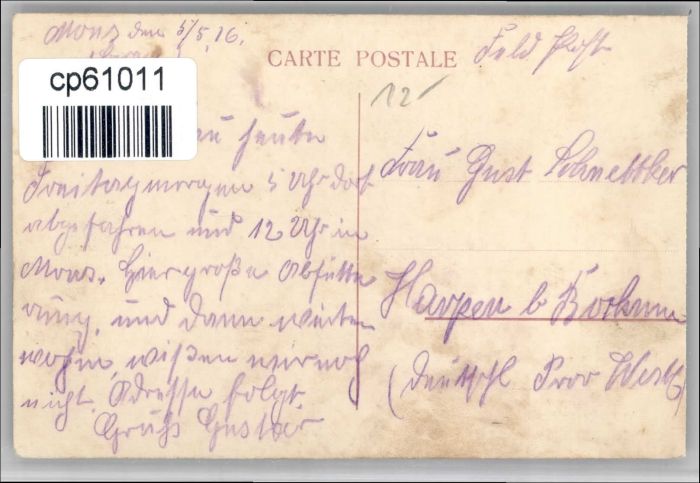 Mons den 5/5.16.
CARTE POSTALE
Feld Post
cp61011
12
heute
Freitagmorgen 5 Uhr dort
abgefahren und 12 Uhr in
Mons. Hier große Abfütte
rung, und dann weiter
wohin, wißen wir noch
nicht. Adresse folgt.
Gruß Gustav
Frau Gust Schnettker
Harpen b Bochum
(Deutschl Prov Westf)